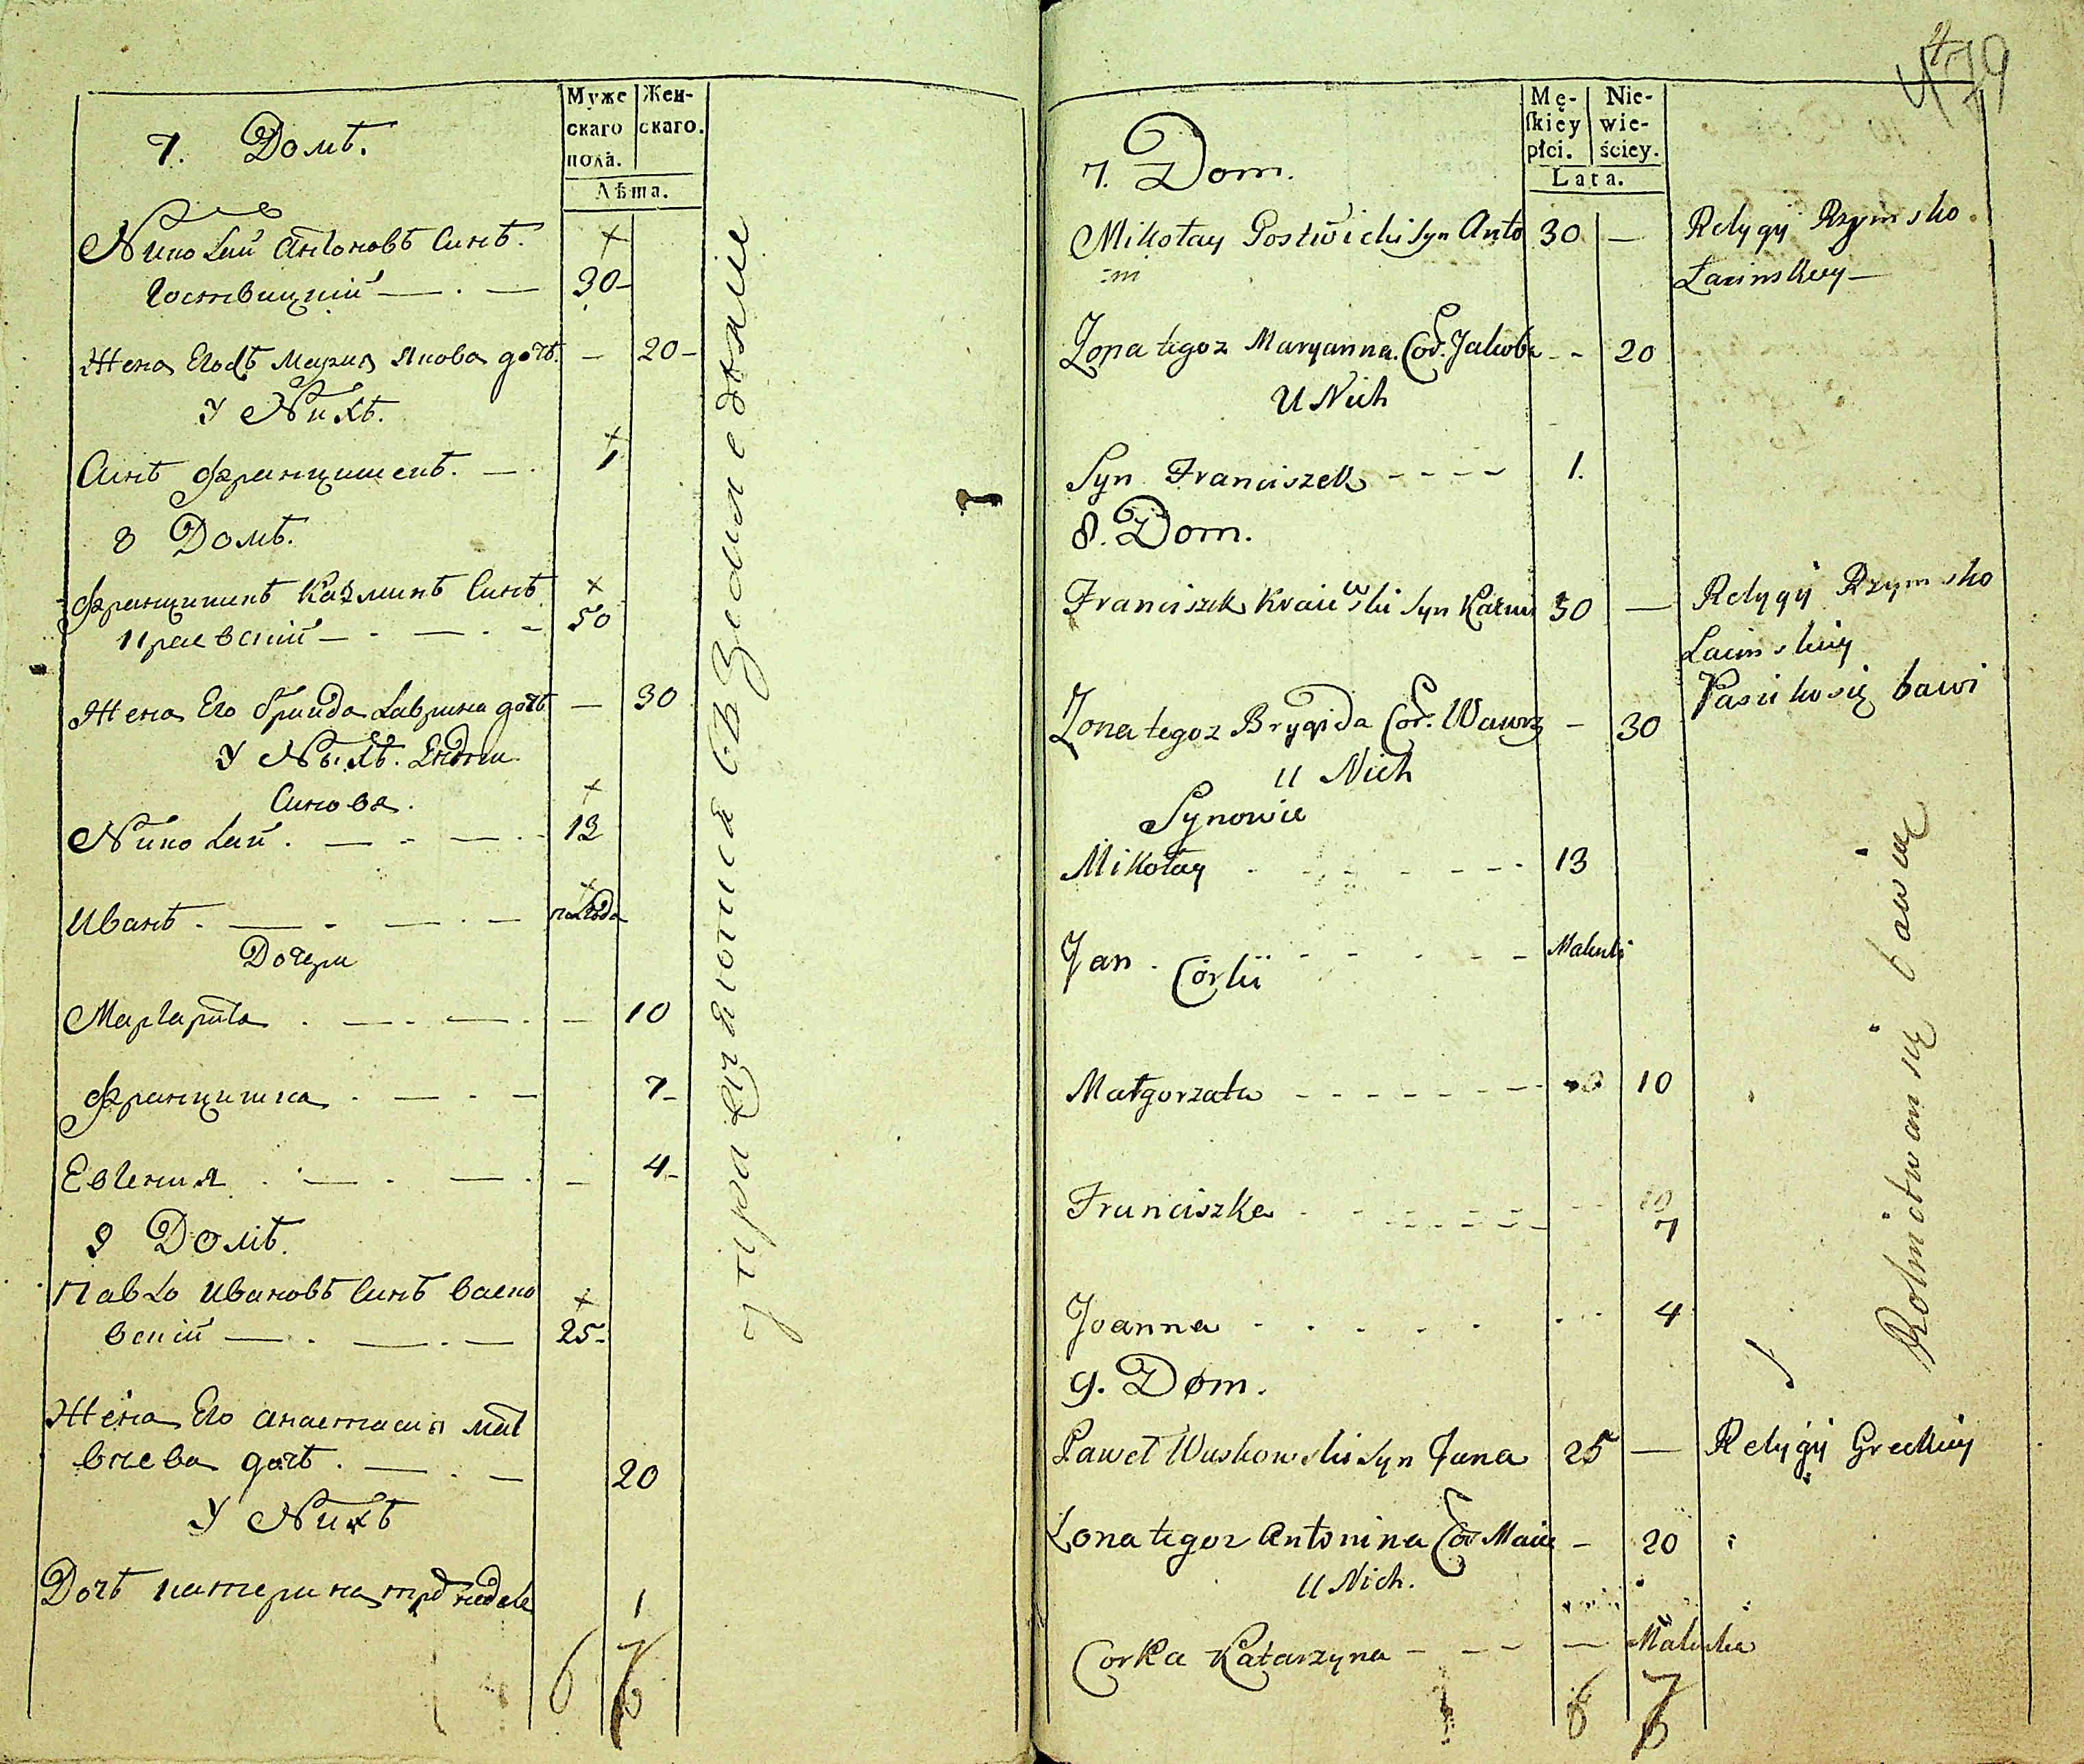 Муже
скаго
пола.
Жен-
скаго.
Лѣта.
7. Домъ.
Николай Антоновъ Синъ.
Гоствицкий — . —
30 —
Жена Его Мария Якова дочь. —
20 —
У Нихъ.
Синъ Францишекъ. — .
1
8 Домъ.
Францишикъ Казминъ Синъ
Краевский — . — . —
50
Жена Его Бригида Лаврина дочь —
30
У Нихъ.
Синова.
Николай. — - — . -
13
Иванъ. — - — . —
пол года
Дочери
Маргарита . — . — . —
10
Францишка . — . —
7 -
Евгения . — . — . —
4 -
9 Домъ.
Павло Ивановъ Синъ Васко
вский — . — . —
25 -
Жена Его Анастасия Мат
вѣева дочь. — . —
20
У Нихъ
Дочъ Катерина недель
1
6 7
упражняются въ земледелие
479
Mę-
ſkiey
płci.
Nie-
wie-
ściey.
Lata.
7. Dom.
Mikołay Gostwicki Syn Anto
30 —
Relygÿ Rzymsko
:ni
Łacinskiey —
Żona tegoz Maryanna. Cór. Jakoba - -
20
U Nich
Syn Franciszek - - - -
1.
8. Dom.
Franciszek Kraiewski Syn Kaźmi
50 —
Relygÿ Rzymsko
Łacinskiey
Żona tegoz Brygida Cór. Wawrz -
30
bawi
u Nich
Synowie
Mikołay . - - - - - -
13
Jan . - - - - -
Malutki
Córki
Małgorzata - - - - - - -
10
Franciszka . - - - - - -
7
Joanna - . . . . . -
4
9. Dom.
Paweł Waskowski Syn Jana
25 —
Relygÿ Greckiey
Zona tegoz Antonina Cór Macie -
20
u Nich.
Corka Katarzyna - - - —
Malutka
6 7
Rolnictwem się bawią